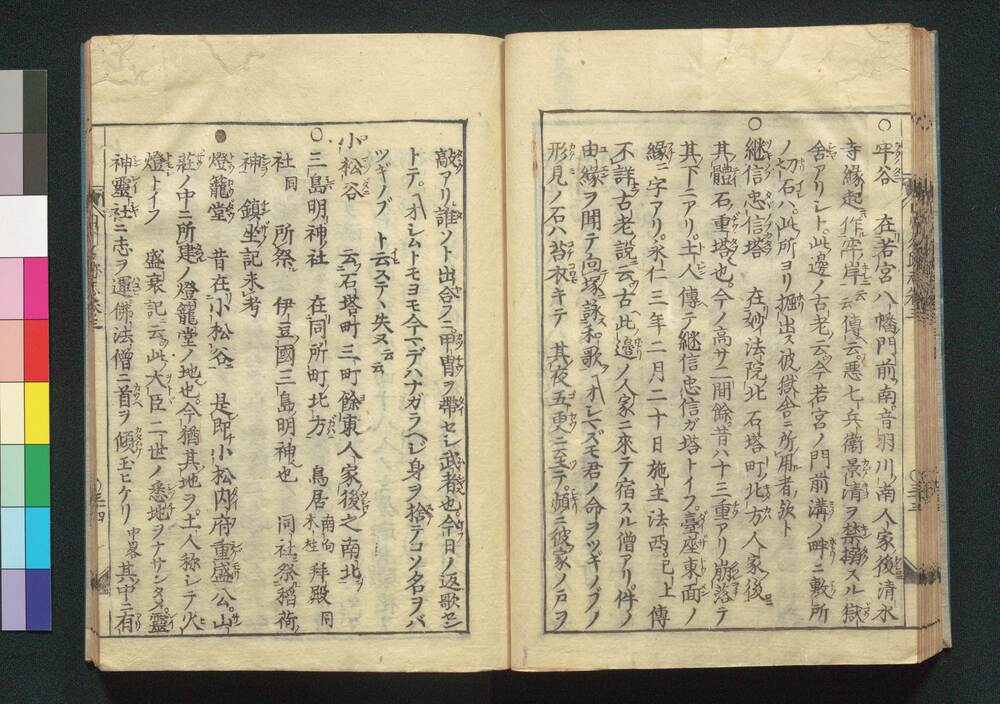 ○ 牢谷 在若宮八幡門前南音羽川南人家後清水
寺縁起作牢岸云傳云悪七兵衛景清ヲ禁獄スル獄
舎アリシト此邊ノ古老云今若宮ノ門前溝ノ畔ニ敷所
ノ切石ハ此所ヨリ掘出ス彼獄舎ニ所用者欤ト
○ 継信忠信塔 在妙法院北石塔町北方人家後
其體石重塔也今ノ高サ二間餘昔ハ十三重アリ崩落テ
其下ニアリ土人傳テ継信忠信ガ塔トイフ臺座東面ノ
縁ニ字アリ永仁三年二月二十日施主法西已上傳
不詳古老説云古此邊ノ人家ニ來テ宿スル僧アリ件ノ
由縁ヲ聞テ向塚詠和歌 オシマズモ君ノ命ヲツギノブノ
形見ノ石ハ苔衣キテ 其夜五更ニ至テ頻ニ彼家ノ戸ヲ
敲アリ誰ノト出合フニ甲冑ヲ帶セシ武者也今日ノ返歌セン
トテ オシムトモヨモ今マデハナガラヘジ身ヲ捨テコソ名ヲバ
ツギノブ ト云ステヽ失ヌ云云
小松谷 云石塔町三町餘東人家後之南北
○ 三島明神社 在同所町北方 鳥居南向木柱拜殿同
社同 所祭 伊豆國三島明神也 同社祭稻荷
神 鎮坐記未考
● 燈籠堂 昔在小松谷 是即小松内府重盛公山
莊ノ中ニ所建ノ燈籠堂ノ地也今猶其地ヲ土人称シテ火
燈トイフ 盛衰記云此大臣二世ノ悉地ヲナサンタメ靈
神靈社ニ志ヲ運佛法僧ニ首ヲ傾玉ヒケリ中畧其中ニ有